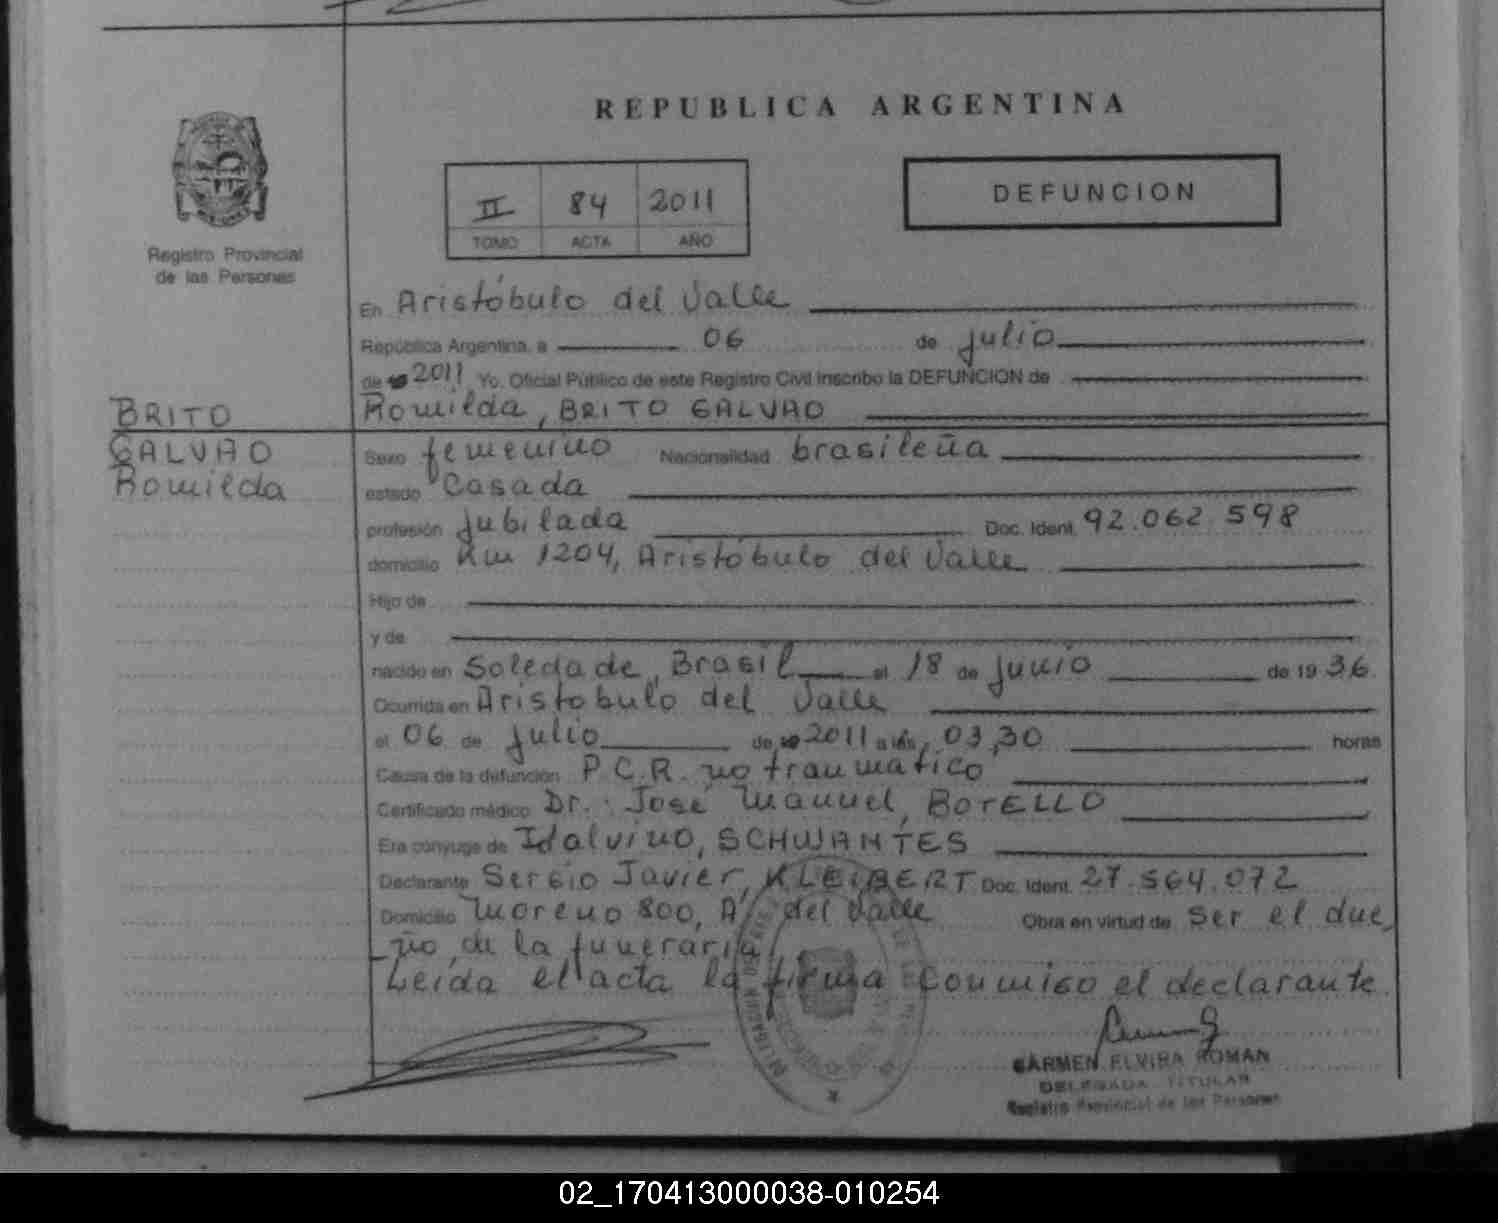 REPUBLICA ARGENTINA
II 84 2011
TOMO ACTA AÑO
DEFUNCION
Registro Provincial
de las Personas
En Aristóbulo del Valle
República Argentina, a 06 de julio
de 2011 Yo, Oficial Público de este Registro Civil inscribo la DEFUNCION de
Romilda, BRITO GALVAO
BRITO
GALVAO
Romilda
Sexo femenino Nacionalidad brasileña
estado Casada
profesión jubilada Doc. Ident. 92.062.598
domicilio Km 1204, Aristóbulo del Valle
Hijo de
y de
nacido en Soledade, Brasil el 18 de junio de 1936.
Ocurrida en Aristobulo del Valle
el 06 de julio de 2011 a las 03,30 horas
Causa de la defunción P.C.R. no traumatico
Certificado médico Dr.: José Manuel, BOTELLO
Era cónyuge de Idalvino, SCHWANTES
Declarante Sergio Javier, KLEIBERT Doc. Ident. 27.564.072
Domicilio Moreno 800, A° del Valle Obra en virtud de ser el due
ño, de la funeraria,
Leida el acta la firma conmigo el declarante.
CARMEN ELVIRA ROMAN
DELEGADA TITULAR
Registro Provincial de las Personas
02_170413000038-010254